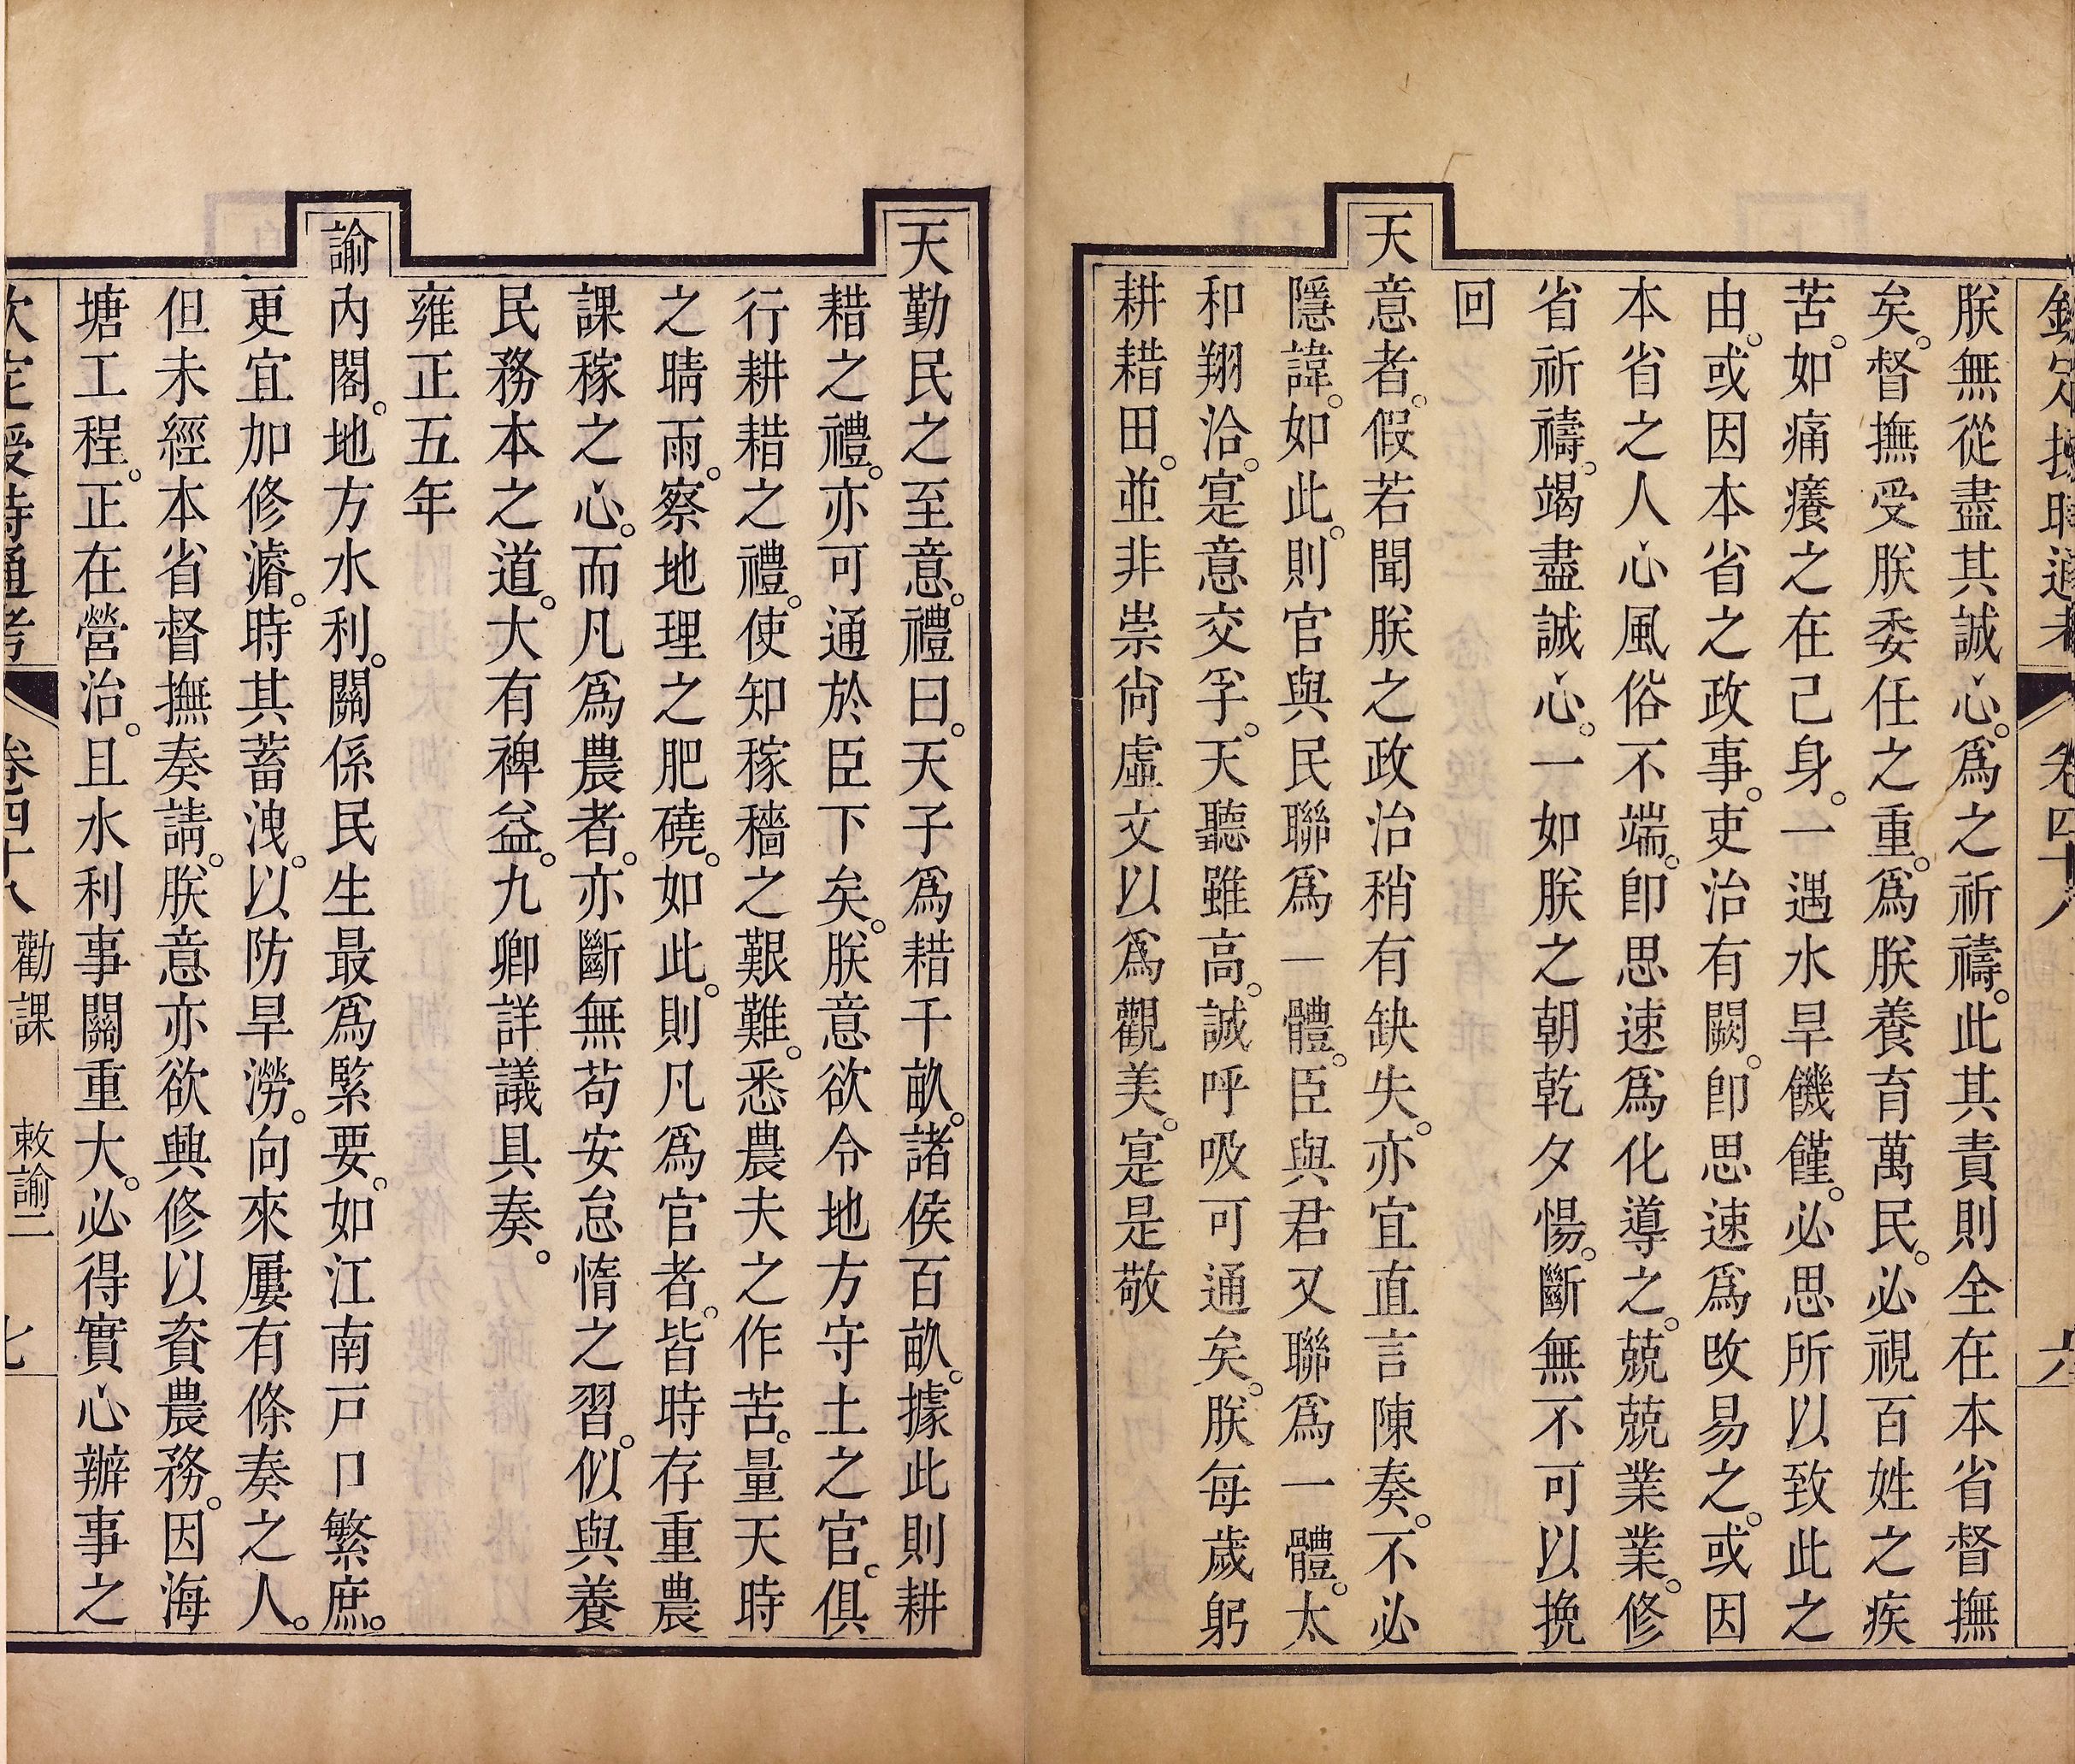 欽定授時通考 卷四十八 六
朕無從盡其誠心。爲之祈禱。此其責則全在本省督撫
矣。督撫受朕委任之重。爲朕養育萬民。必視百姓之疾
苦。如痛癢之在己身。一遇水旱饑饉。必思所以致此之
由。或因本省之政事。吏治有闕。卽思速爲改易之。或因
本省之人心風俗不端。卽思速爲化導之。兢兢業業。修
省祈禱。竭盡誠心。一如朕之朝乾夕惕。斷無不可以挽
回
天意者。假若聞朕之政治稍有缺失。亦宜直言陳奏。不必
隱諱。如此。則官與民聯爲一體。臣與君又聯爲一體。太
和翔洽。寔意交孚。天聽雖高。誠呼吸可通矣。朕每歲躬
耕耤田。並非崇尙虛文以爲觀美。寔是敬
天勤民之至意。禮曰。天子爲耤千畝。諸侯百畝。據此則耕
耤之禮。亦可通於臣下矣。朕意欲令地方守土之官。俱
行耕耤之禮。使知稼穡之艱難。悉農夫之作苦。量天時
之晴雨。察地理之肥磽。如此。則凡爲官者。皆時存重農
課稼之心。而凡爲農者。亦斷無苟安怠惰之習。似與養
民務本之道。大有裨益。九卿詳議具奏。
雍正五年
諭內閣。地方水利。關係民生最爲緊要。如江南戸口繁庶。
更宜加修濬。時其蓄洩。以防旱澇。向來屢有條奏之人。
但未經本省督撫奏請。朕意亦欲興修以資農務。因海
塘工程。正在營治。且水利事關重大。必得實心辦事之
欽定授時通考 卷四十八 勸課 敕諭二 七